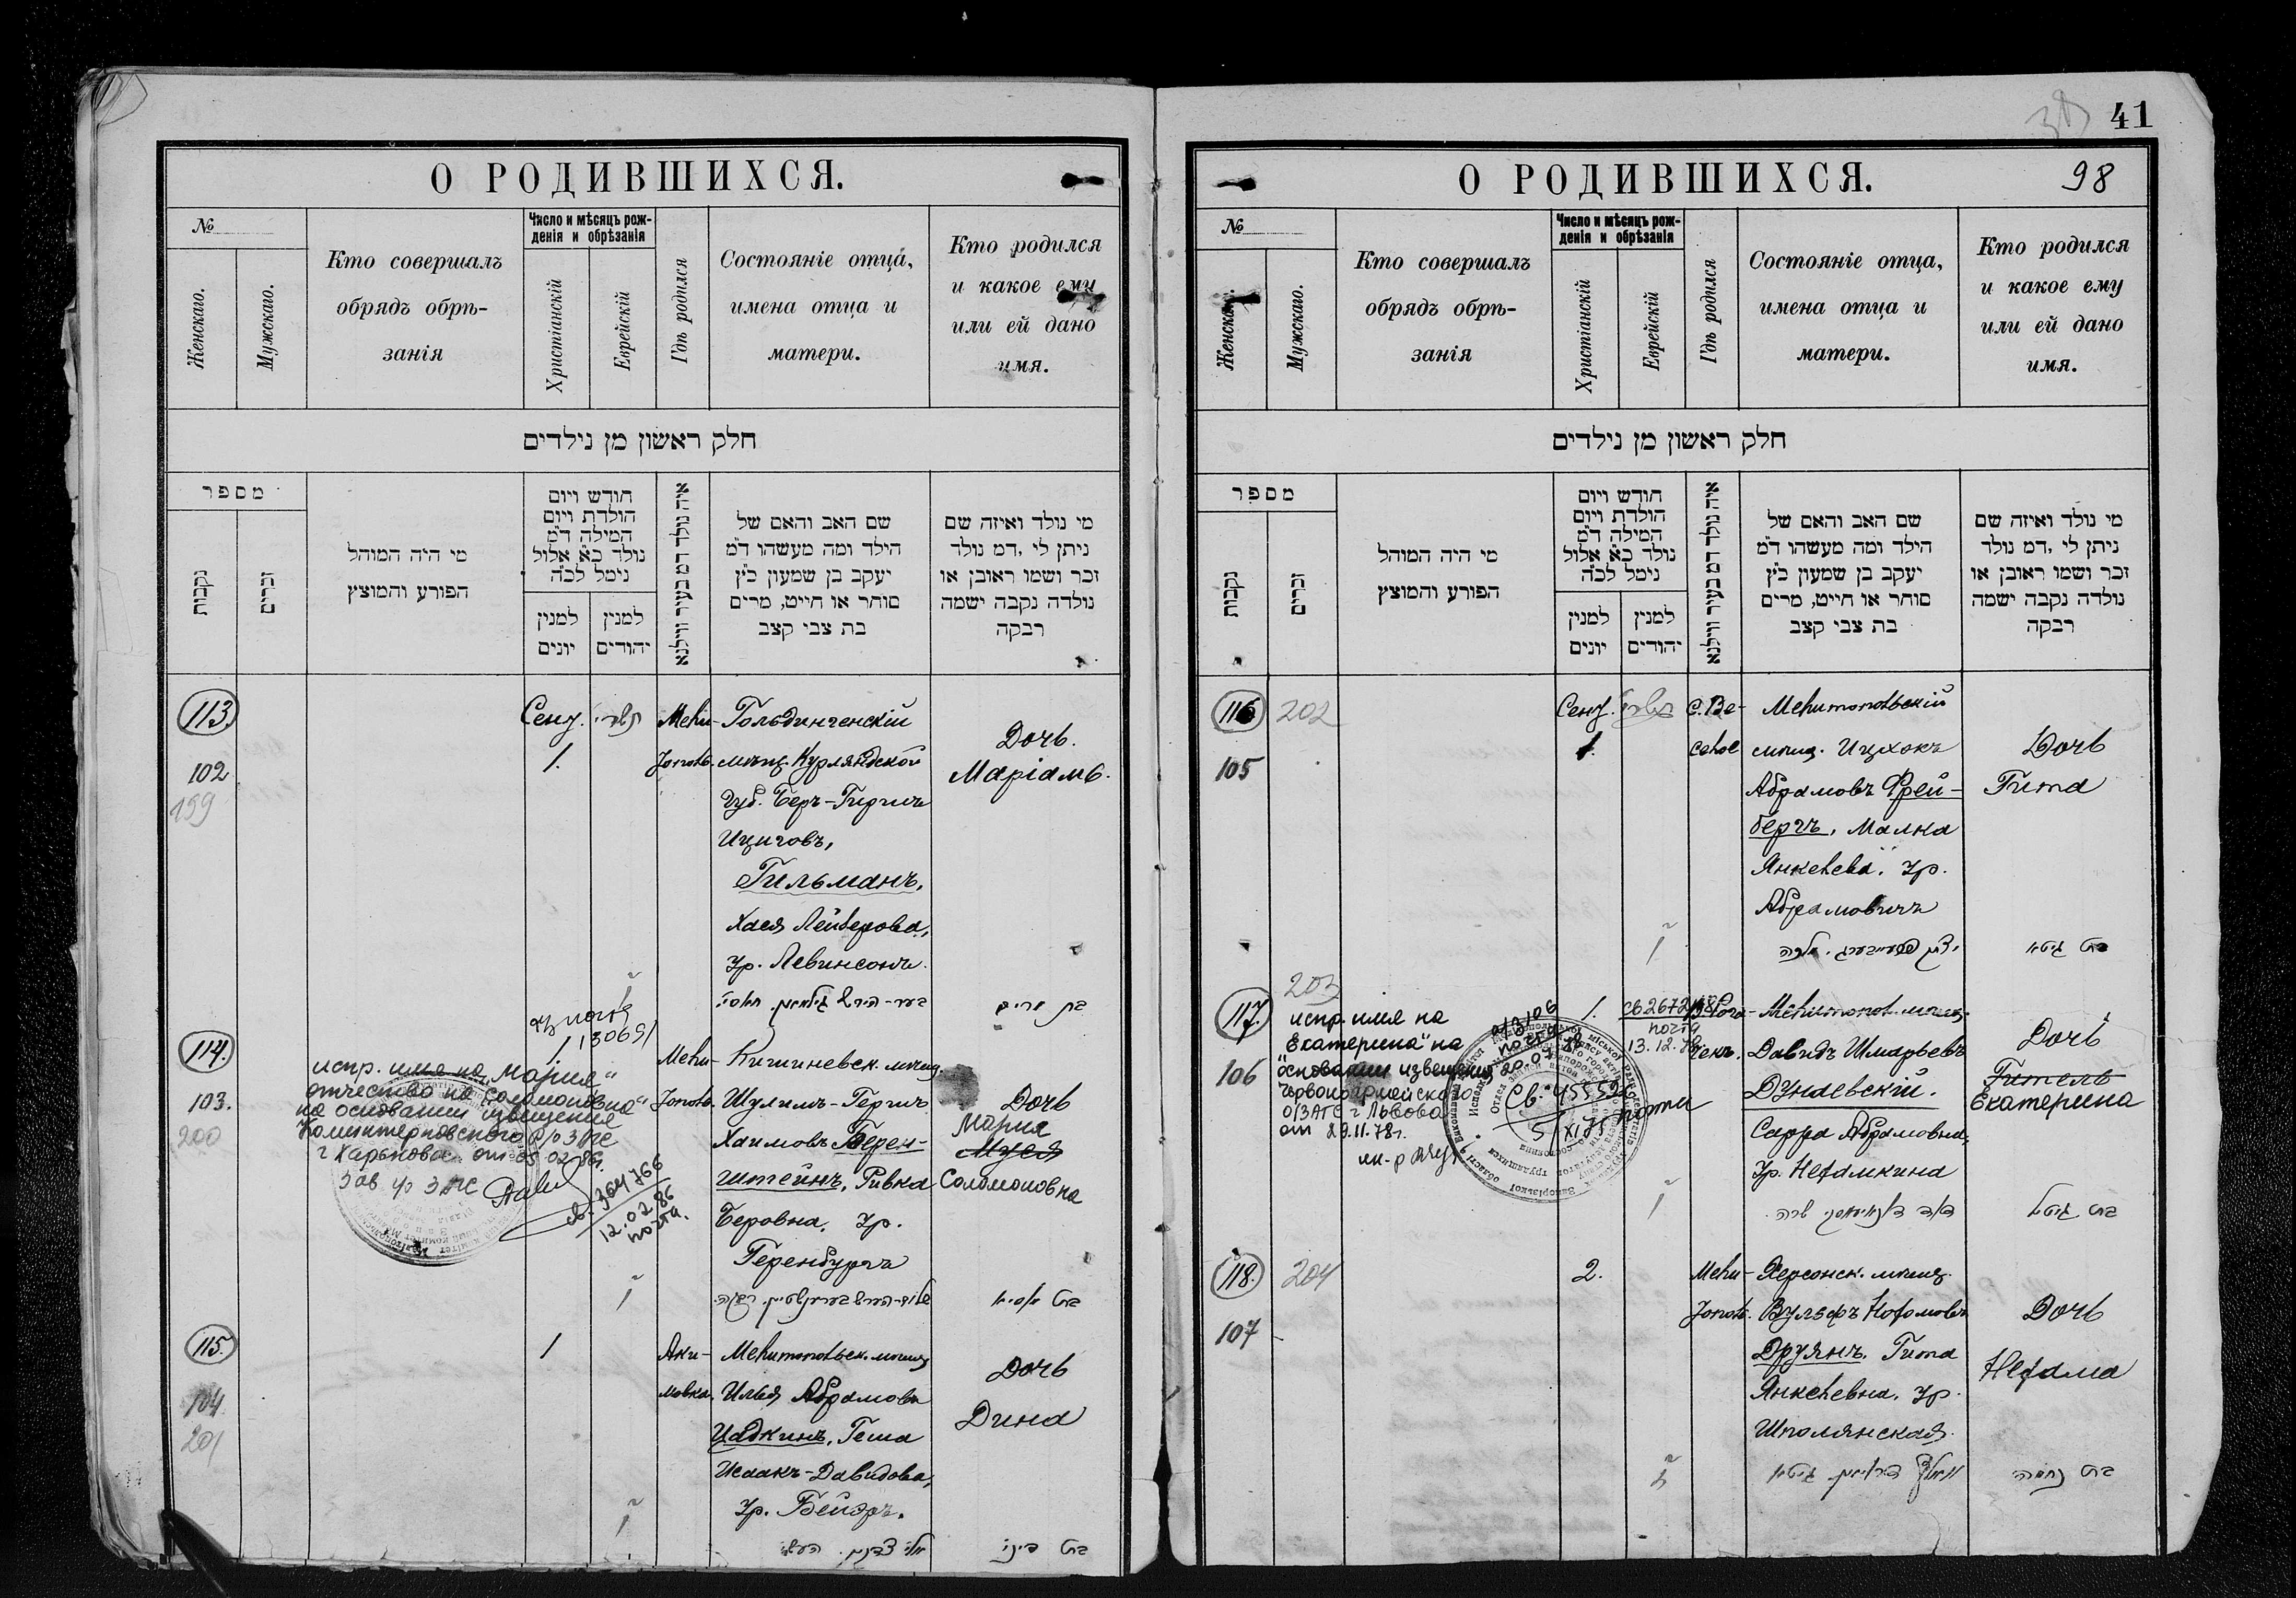 О РОДИВШИХСЯ.
№
Женскаго.
Мужскаго.
Кто совершалъ
обрядъ обрѣ-
занія
Число и мѣсяцъ рож-
денія и обрѣзанія
Христіанскій
Еврейскій
Гдѣ родился
Состояніе отца,
имена отца и
матери.
Кто родился
и какое ему
или ей дано
имя.
חלק ראשון מן נילדים
מספר
נקבות
זכרים
מי היה המוהל
הפורע והמוצץ
חודש ויום
הולדת ויום
המילה ד"מ
נולד כ"א אלול
נימל לכ"ה
למנין
יונים
למנין
יהודים
איה נולד דמ בעיר ווילנא
שם האב והאם של
הילד ומה מעשהו ד"מ
יעקב בן שמעון כ"ץ
סוחר או חייט, מרים
בת צבי קצב
מי נולד ואיזה שם
ניתן לי, דמ נולד
זכר ושמו ראובן או
נולדה נקבה ישמה
רבקה
113.
102
199
Сент.
תשרי
1.
Мели-
тополь.
Гольдингенскій
мѣщ. Курляндской
губ. Беръ-Гиршъ
Ициговъ,
Гильманъ,
Хася Лейберова,
ур. Левинсонъ.
Дочь.
Маріамъ.
בת מרים
114.
103.
200
испр. имя на „Мария"
отчество на „Соломоновна"
на основании извещения
Коминтерновского р/о ЗАГС
г Харькова от 05.02.86г.
Зав. р/о ЗАГС
св. 364766
12.02.86
почта.
почта
1130691
1.
Мели-
тополь.
Кишиневск. мѣщ.
Шулимъ-Гершъ
Хаимовъ Берен-
штейнъ, Ривка
Беровна, ур.
Геренбургъ
Дочь
Мария
Соломоновна
115.
104
201
1
Аки-
мовка.
Мелитопольск. мѣщ.
Илья Абрамовъ
Цадкинъ, Геша
Исаакъ-Давидова,
ур. Бейзръ.
Дочь
Дина
41
О РОДИВШИХСЯ.
98
№
Женскаго.
Мужскаго.
Кто совершалъ
обрядъ обрѣ-
занія
Число и мѣсяцъ рож-
денія и обрѣзанія
Христіанскій
Еврейскій
Гдѣ родился
Состояніе отца,
имена отца и
матери.
Кто родился
и какое ему
или ей дано
имя.
חלק ראשון מן נילדים
מספר
נקבות
זכרים
מי היה המוהל
הפורע והמוצץ
חודש ויום
הולדת ויום
המילה ד"מ
נולד כ"א אלול
נימל לכ"ה
למנין
יונים
למנין
יהודים
איה נולד דמ בעיר ווילנא
שם האב והאם של
הילד ומה מעשהו ד"מ
יעקב בן שמעון כ"ץ
סוחר או חייט, מרים
בת צבי קצב
מי נולד ואיזה שם
ניתן לי, דמ נולד
זכר ושמו ראובן או
נולדה נקבה ישמה
רבקה
116
202
105
Сент.
תשרי
1.
с. Ве-
селое
Мелитопольскій
мѣщ. Ицхокъ
Абрамовъ Фрей-
бергъ, Малка
Янкелева, ур.
Абрамовичъ
Дочь
Гита
117.
203
106
испр. имя на
"Екатерина" на
основании извещения
Червоноармейского
о/ЗАГС г Львова
от 29.11.78г.
почта
Св. 455526
5/XI 75
почта
1.
почта
13.12.78
Мелитопол. мѣщ.
Давидъ Шмарьевъ
Дунаевскій.
Сарра Абрамовна,
ур. Нехамкина
Дочь
Гитель
Екатерина
118.
204
107
2.
Мели-
тополь.
Херсонск. мѣщ.
Вульфъ Нохомовъ
Друянъ, Гита
Янкелевна, ур.
Шполянская.
Дочь
Нехама